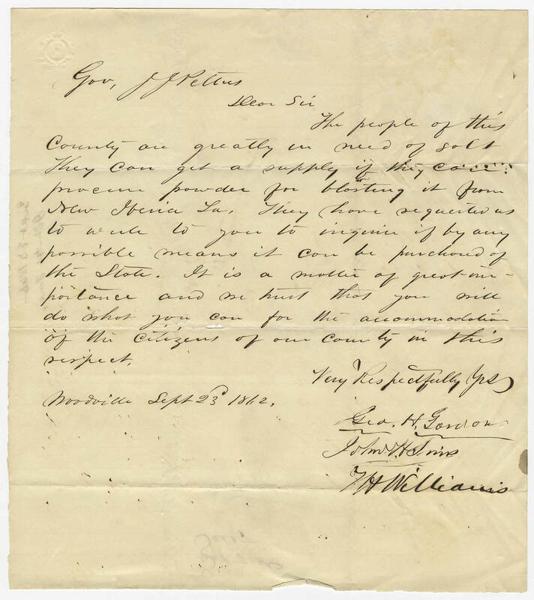 Gov, J J Pettus
Dear Sir
The people of this
County are greatly in need of salt
They can get a supply if they can
procure powder for blasting it from
New Iberia La. They have requested us
to write to you to inquire if by any
possible means it can be purchased of
the State. It is a matter of great im-
portance and we trust that you will
do what you can for the accommodation
of the citizens of our county in this
respect.
Very Respectfully Yrs
Woodville Sept 23d 1862.
Geo. H. Gordon
John W Sims
F H Williams